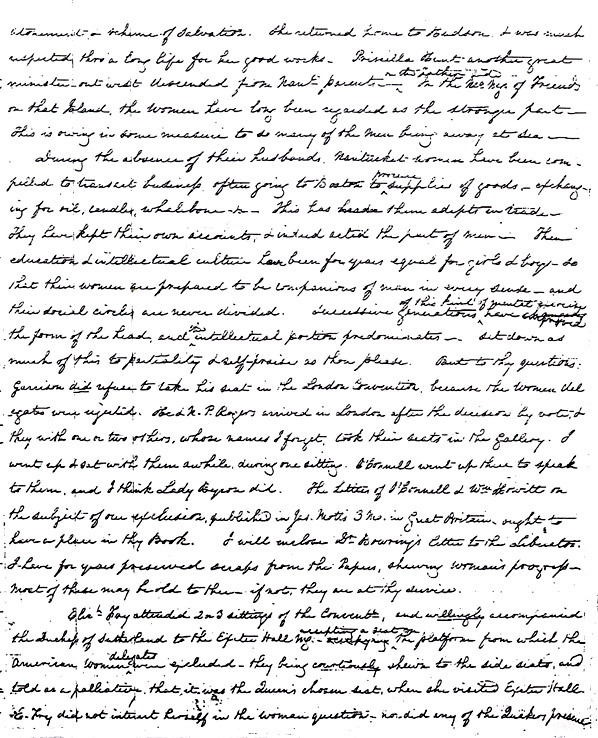 atonement & scheme of Salvation. She returned home to Hudson, & was much
respected thro' a long life for her good works— Priscilla Hunt another great
minister out west descended from Nant. parents— on the Father's side In the Mo. Mgs of Friends
on that Island, the Women have long been regarded as the stronger part—
This is owing in some measure to so many of the Men being away at sea—
During the absence of their husbands, Nantucket women have been com-
pelled to transact business, often going to Boston to procure supplies of goods—exchang-
ing for oil, candles, whalebone—&c— This has made them adepts in trade—
They have kept their own accounts, & indeed acted the part of men— Then
education & intellectual culture have been for years equal for girls & boys—so
that their women are prepared to be companions of man in every sense—and
their social circles are never divided. Successive generations of this kind of mental exercise have improved
the form of the head, and the intellectual portion predominates—. Set down as
much of this to partiality & self praise as thou please. But to thy questions:
Garrison did refuse to take his seat in the London Convention, because the Women del
egates were rejected. He & N. P. Rogers arrived in London after the decision by vote, &
they with one or two others, whose names I forget, took their seats in the Gallery. I
went up & sat with them awhile, during one sitting. O'Connell went up there to speak
to them, and I think Lady Byron did. The letters of O'Connell & Wm. Howitt on
the subject of our exclusion, published in Jas. Mott's 3 Mo. in Great Britain, ought to
have a place in thy Book. I will inclose Dr. Bowring's letter to the Liberator.
I have for years preserved scraps from the Papers, shewing Woman's progress—
Most of these may be old to thee—if not, they are at thy service.
Elizh. Fry attended 2 or 3 sittings of the Conventn., and willingly accompanied
the Duchess of Sutherland to the Exeter Hall Mg.— accepting a seat on the platform from which the
American Women delegates were excluded—they being courteously shewn to the side seats, and
told as a palliative, that it was the Queen's chosen seat, when she visited Exeter Hall
E. Fry did not interest herself in the woman question—nor did any of the Quakers present